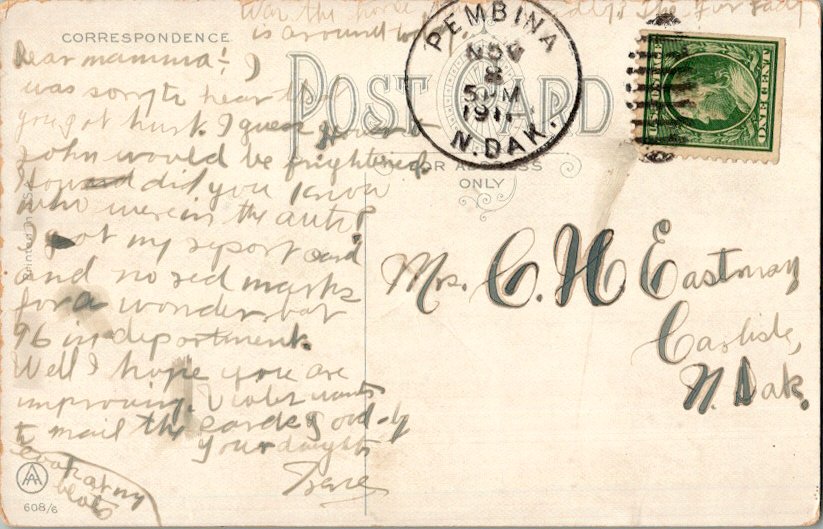 War the horse
is around
CORRESPONDENCE
POST CARD
FOR ADDRESS
ONLY
PEMBINA
NOV
8
5 PM
1911
N. DAK.
ONE CENT
Dear mamma! I
was sorry to hear that
you got hurt. I guess
John would be frightened.
How did you know
who were in the auto?
I got my report card
and no red marks
for a wonder, but
96 in department.
Well I hope you are
improving. Violet wants
to mail the card so good-by
Your daughter
Irene
Look at my
blots
Mrs. C. H. Eastman
Carlisle,
N. Dak.
Printed in
AA
608/6